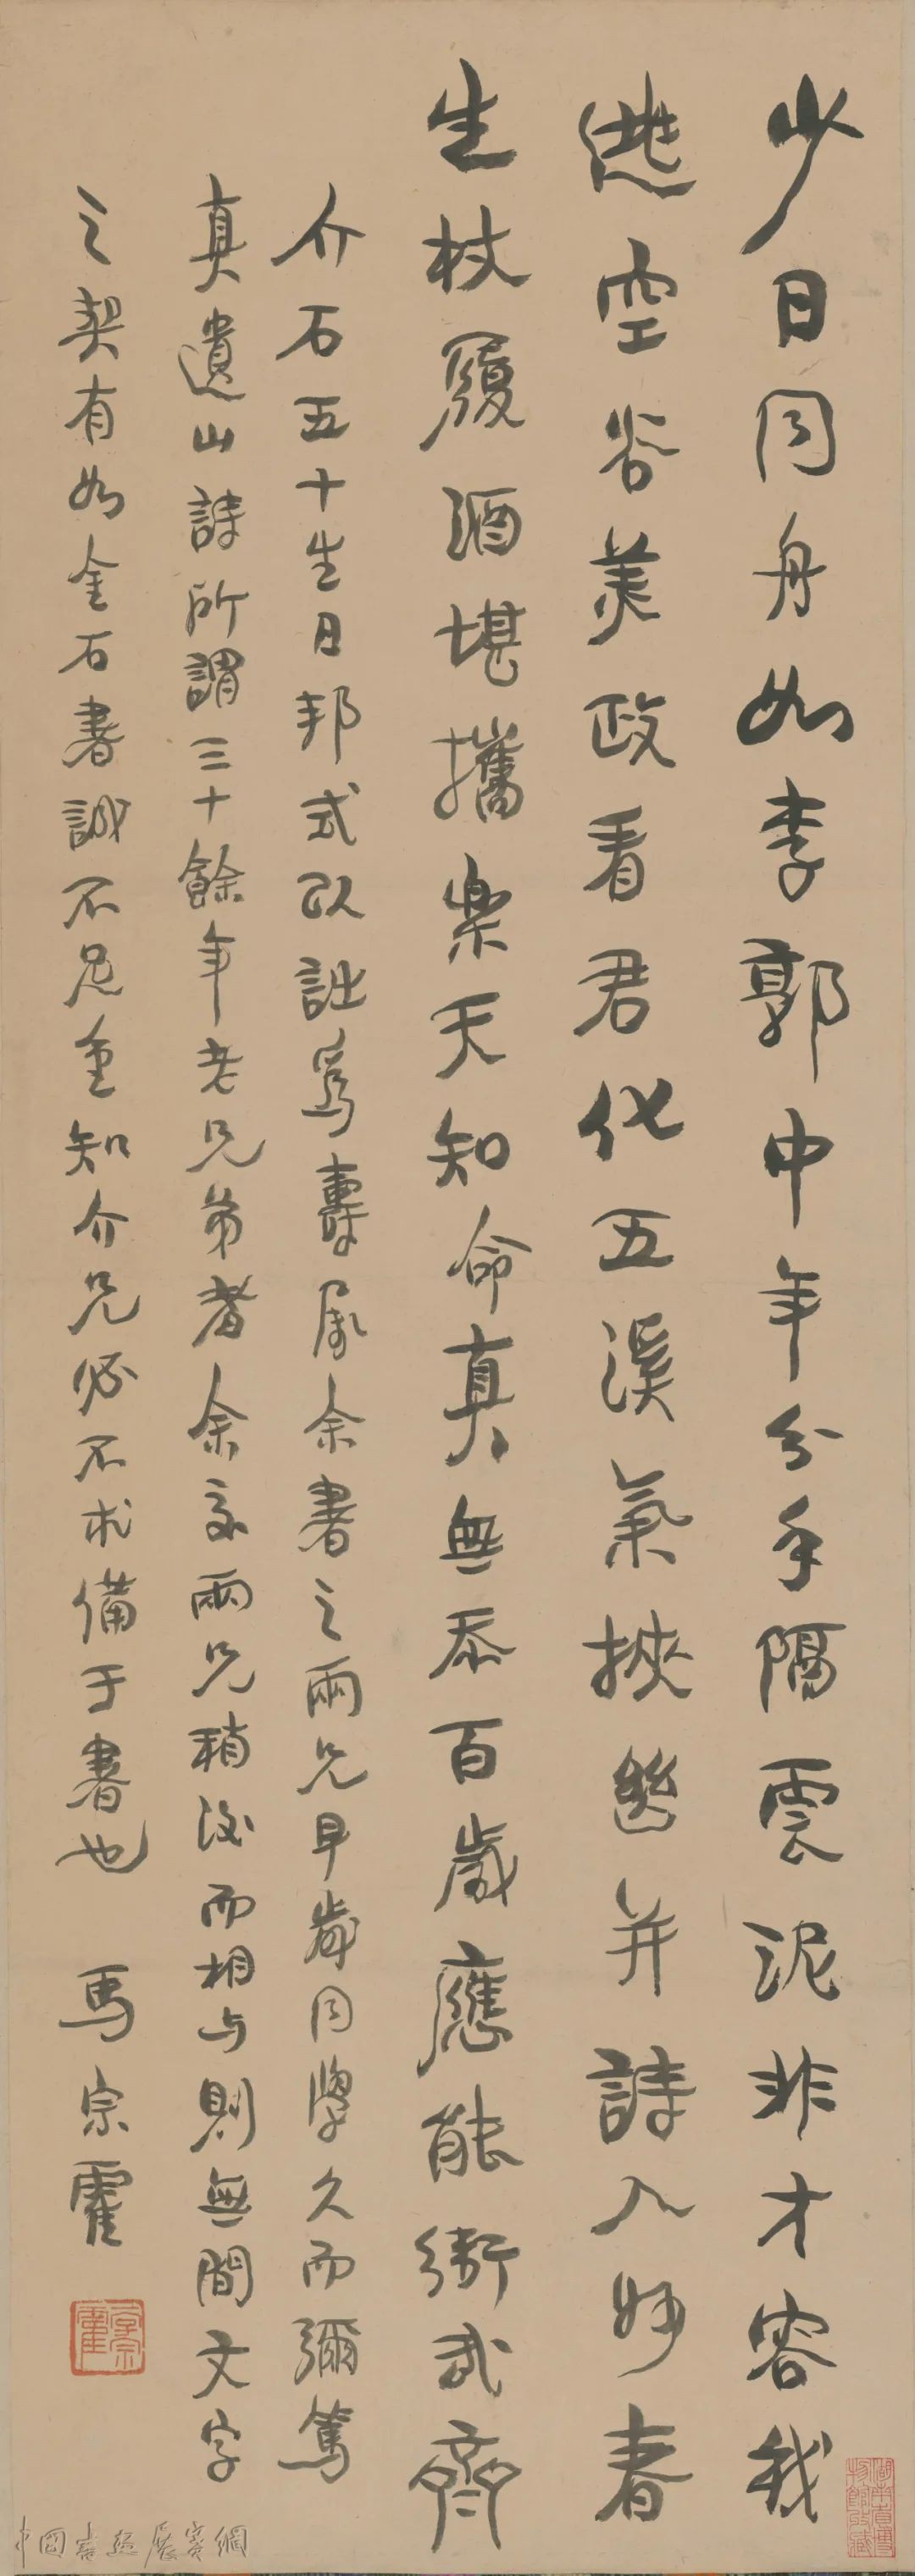 少日同舟如李郭中年分手隔雲泥非才容我
逃空谷美政看君化五溪氣挾幽并詩入妙春
生杖履酒堪攜樂天知命真無忝百歲應能衛武齊
介石五十生日邦式以詩為壽屬余書之兩兄早歲同學久而彌篤
真遺山詩所謂三十餘年老兄弟者余交兩兄稍後而相与則無間文字
之契有如金石書誠不足重知介兄必不求備于書也 馬宗霍
湖南省博物館收藏
中國書法展賽網